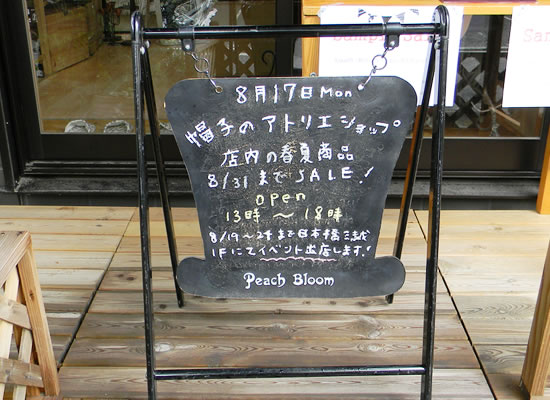 Sample Sa
San
8月17日 Mon
帽子のアトリエショップ
店内の春夏商品
8/31までSALE!
open
13時〜18時
8/19〜24まで日本橋三越
1Fにてイベント出店します!
Peach Bloom